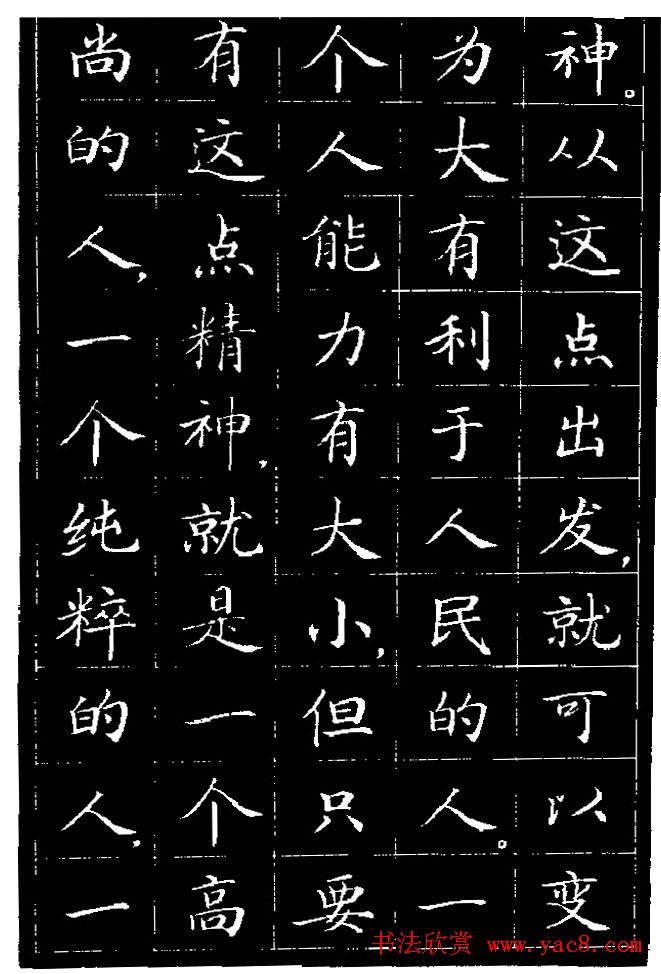 神。从这点出发，就可以变
为大有利于人民的人。一
个人能力有大小，但只要
有这点精神，就是一个高
尚的人，一个纯粹的人，一
书法欣赏 www.yac8.com